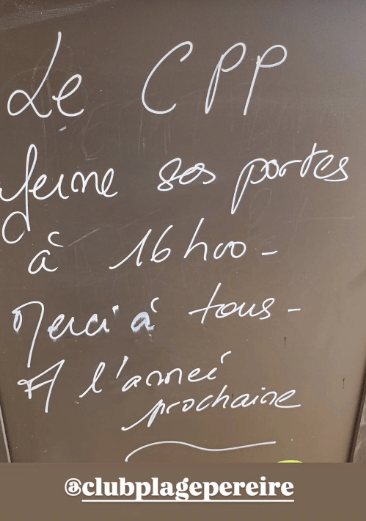 Le CPP
ferme ses portes
à 16h00-
Merci à tous-
A l'année
prochaine
@clubplagepereire